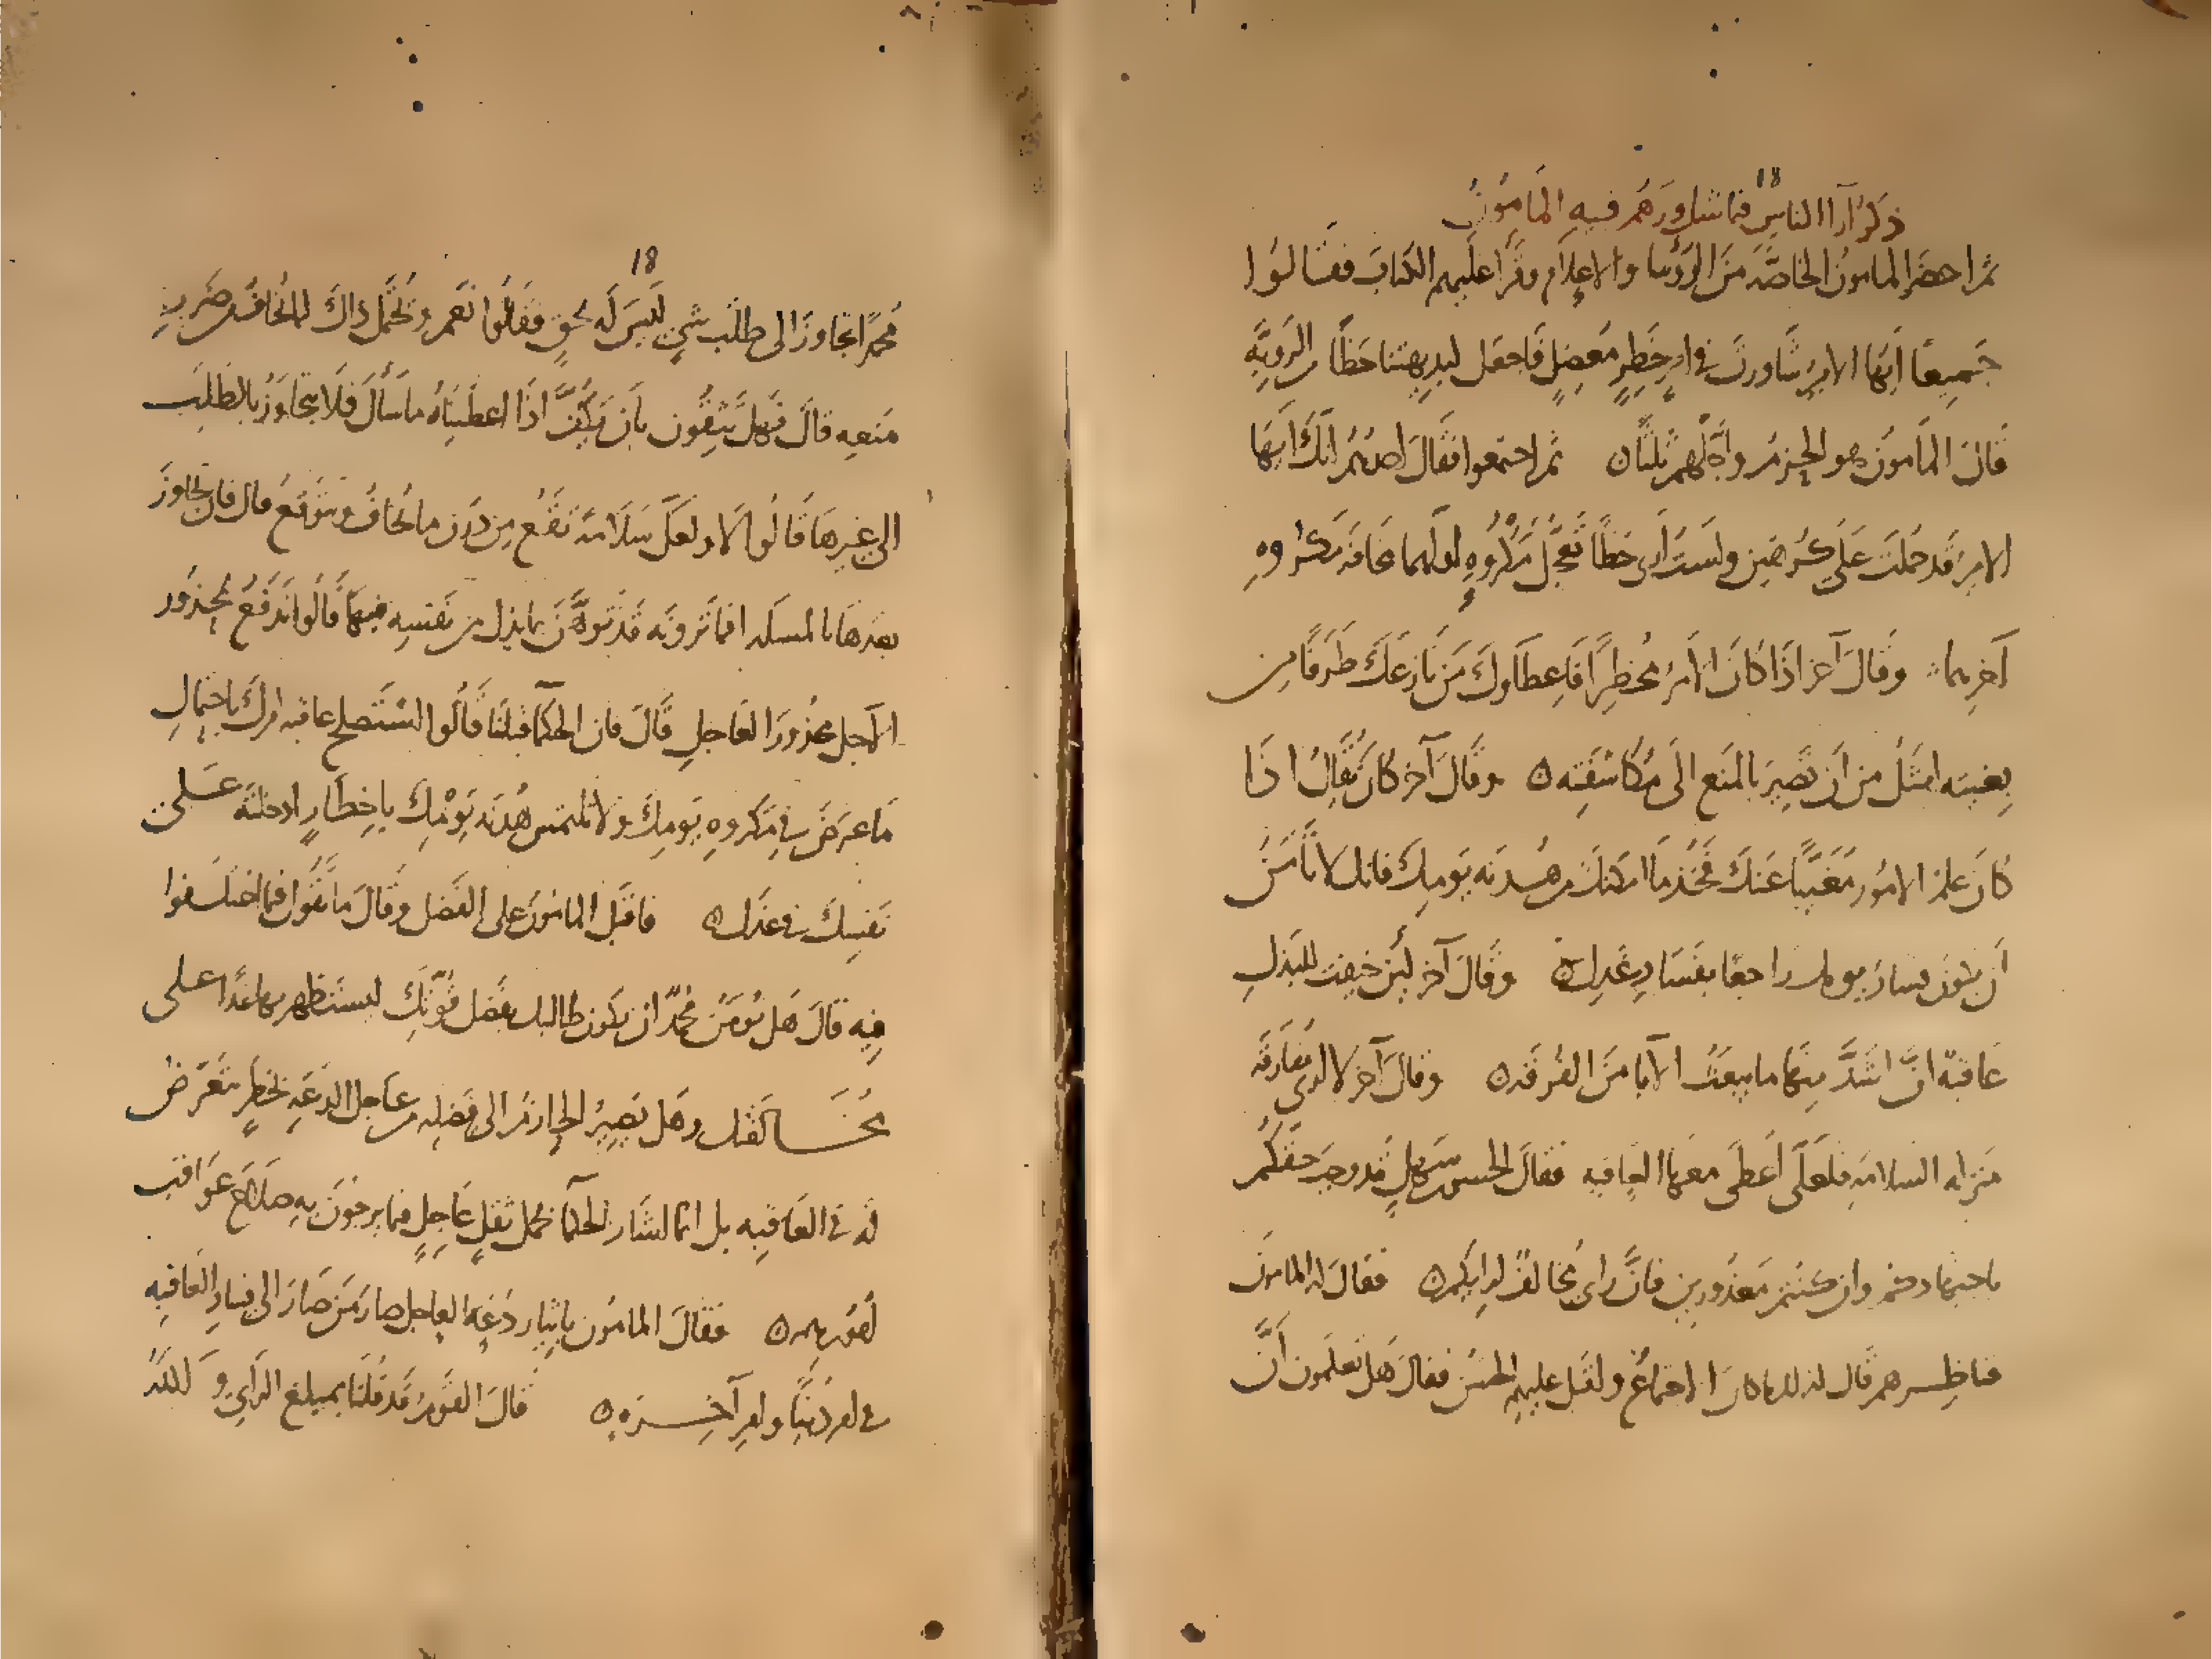 ذكر آرا الناس فيما شاورهم فيه المأمون
18
ثم احضر المامون الخاصّة من الرؤسا والاعلام وقرأ عليهم الكتاب فقالوا
جميعًا ايّها الامير شاورت في امرٍ خطرٍ معضلٍ فاجعل لبديهتنا حظًّا من الرويّة
قال المأمون هو الحزم واجّلهم ثلثًا ٥ ثم اجتمعوا فقال احدهم انّك ايها
الامير قد حملت على كرهين ولست ارى خطأً تعجّل مكروهٍ اولهما مخافة مكروه
آخرهما وقال آخر اذا كان الأمر مخطرًا فاعطاوك من نازعك طرفًا من
بغيته امثل من ان تصير بالمنع الى مكاشفته ٥ وقال آخر كان يقال اذا
كان علم الامور مغيّبًا عنك فخذ ما امكنك من هدنة يومك فانك لا تأمن
أن يكون فساد يومك راجعًا بفساد غدك ٥ وقال آخر لئن خيفت للبذل
عاقبة انّ اشدّ منها ما يبعث الآبا من الفرقة ٥ وقال آخر لا ارى مفارقة
منزله السلامه فلعلّى أعطى معها العافيه فقال الحسن بن سهل قد وجب حقكم
باجتهادكم وان كنتم معذورين فانّ رأى مخالف لرايكم ٥ فقال له المامون
فناظرهم قال لذلك ما كان الاجتماع واقبل عليهم الحسن فقال هل تعلمون أنّ
18
محمدًا تجاوز الى طلب شىٍ ليس له بحقٍ فقالوا نعم ونحتمل ذاك لما نخاف من ضرر
منعه قال فهل تثقون بأن يكفّ اذا اعطيناه ما سأل فلا يتجاوز بالطلب
الى غيرها قالوا لا ولعلّ سلامة تقع من دون ما نخاف ونتوقع قال فان تجاوز
بعدها بالمسله افما ترونه قد توهّن بما بذل من نفسه فيها قالوا ندفع محذور
الآجل محذور العاجل قال فان الحكما قبلنا قالوا استصلح عاقبه امرك باحتمال
ما عرض في مكروه يومك ولا تلتمس هدنة يومك باخطارٍ ادخلته على
نفسك في غدك ٥ فاقبل المامون على الفضل وقال ما تقول فيما اختلفوا
فيه قال هل تؤمن محمّدًا ان يكون طالبك بفضل قوّتك ليستظهر بها غدًا على
مخالفتك وهل يصير الحازم الى فضله من عاجل الدعة بخطرٍ يتعرّض
له في العاقبه بل انما اشار الحكمآ بحمل ثقلٍ عاجلٍ فيما يرجون به صلاح عواقب
أمورهم ٥ فقال المامون بايثار دعة العاجل صار من صار الى فساد العاقبه
في امر دنيًا وامر آخرة ٥ قال القوم قد قلنا بمبلغ الرأي والله